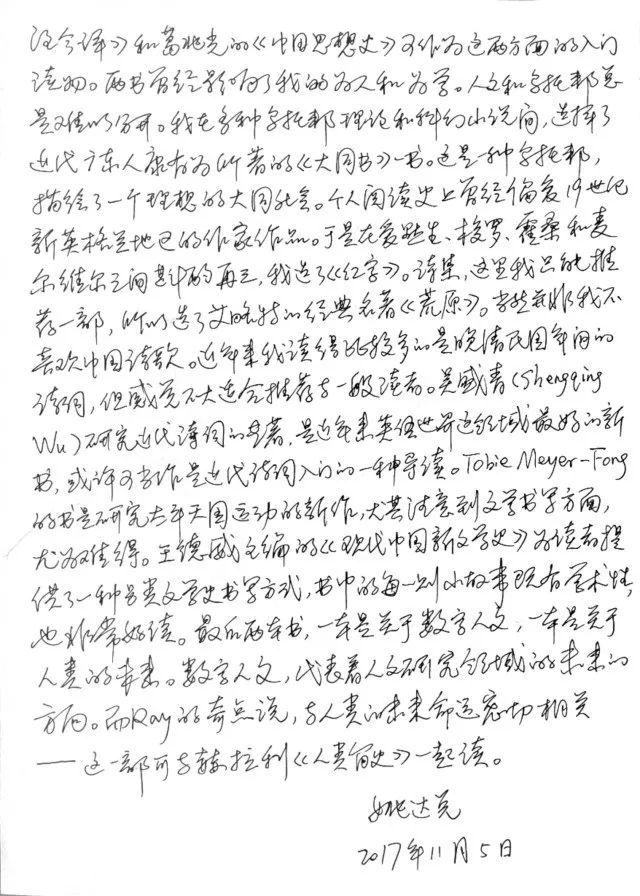 论今译》和葛兆光的《中国思想史》可作为这两方面的入门
读物。两书曾经影响了我的为人和为学。人文和乌托邦总
是难以分开。我在多种乌托邦理论和科幻小说间，选择了
近代广东人康有为所著的《大同书》一书。这是一种乌托邦，
描绘了一个理想的大同社会。个人阅读史上曾经偏爱19世纪
新英格兰地区的作家作品。于是在爱默生、梭罗、霍桑和麦
尔维尔之间斟酌再三，我选了《红字》。诗集，这里我只能推
荐一部，所以选了艾略特的经典名著《荒原》。当然并非我不
喜欢中国诗歌。近年来我读得比较多的是晚清民国年间的
诗词，但感觉不大适合推荐与一般读者。吴盛青（Shengqing
Wu）研究近代诗词的专著，是近年来英语世界这领域最好的新
书，或许可当作是近代诗词入门的一种导读。Tobie Meyer-Fong
的书是研究太平天国运动的新作，尤其注意到文学书写方面，
尤为难得。王德威主编的《现代中国新文学史》为读者提
供了一种另类文学史书写方式，书中的每一则小故事既有学术性，
也非常好读。最后两本书，一本是关于数字人文，一本是关于
人类的未来。数字人文，代表着人文研究领域的未来的
方向。而Ray的奇点说，与人类的未来命运密切相关
——这一部可与赫拉利《人类简史》一起读。
姚达兑
2017年11月5日